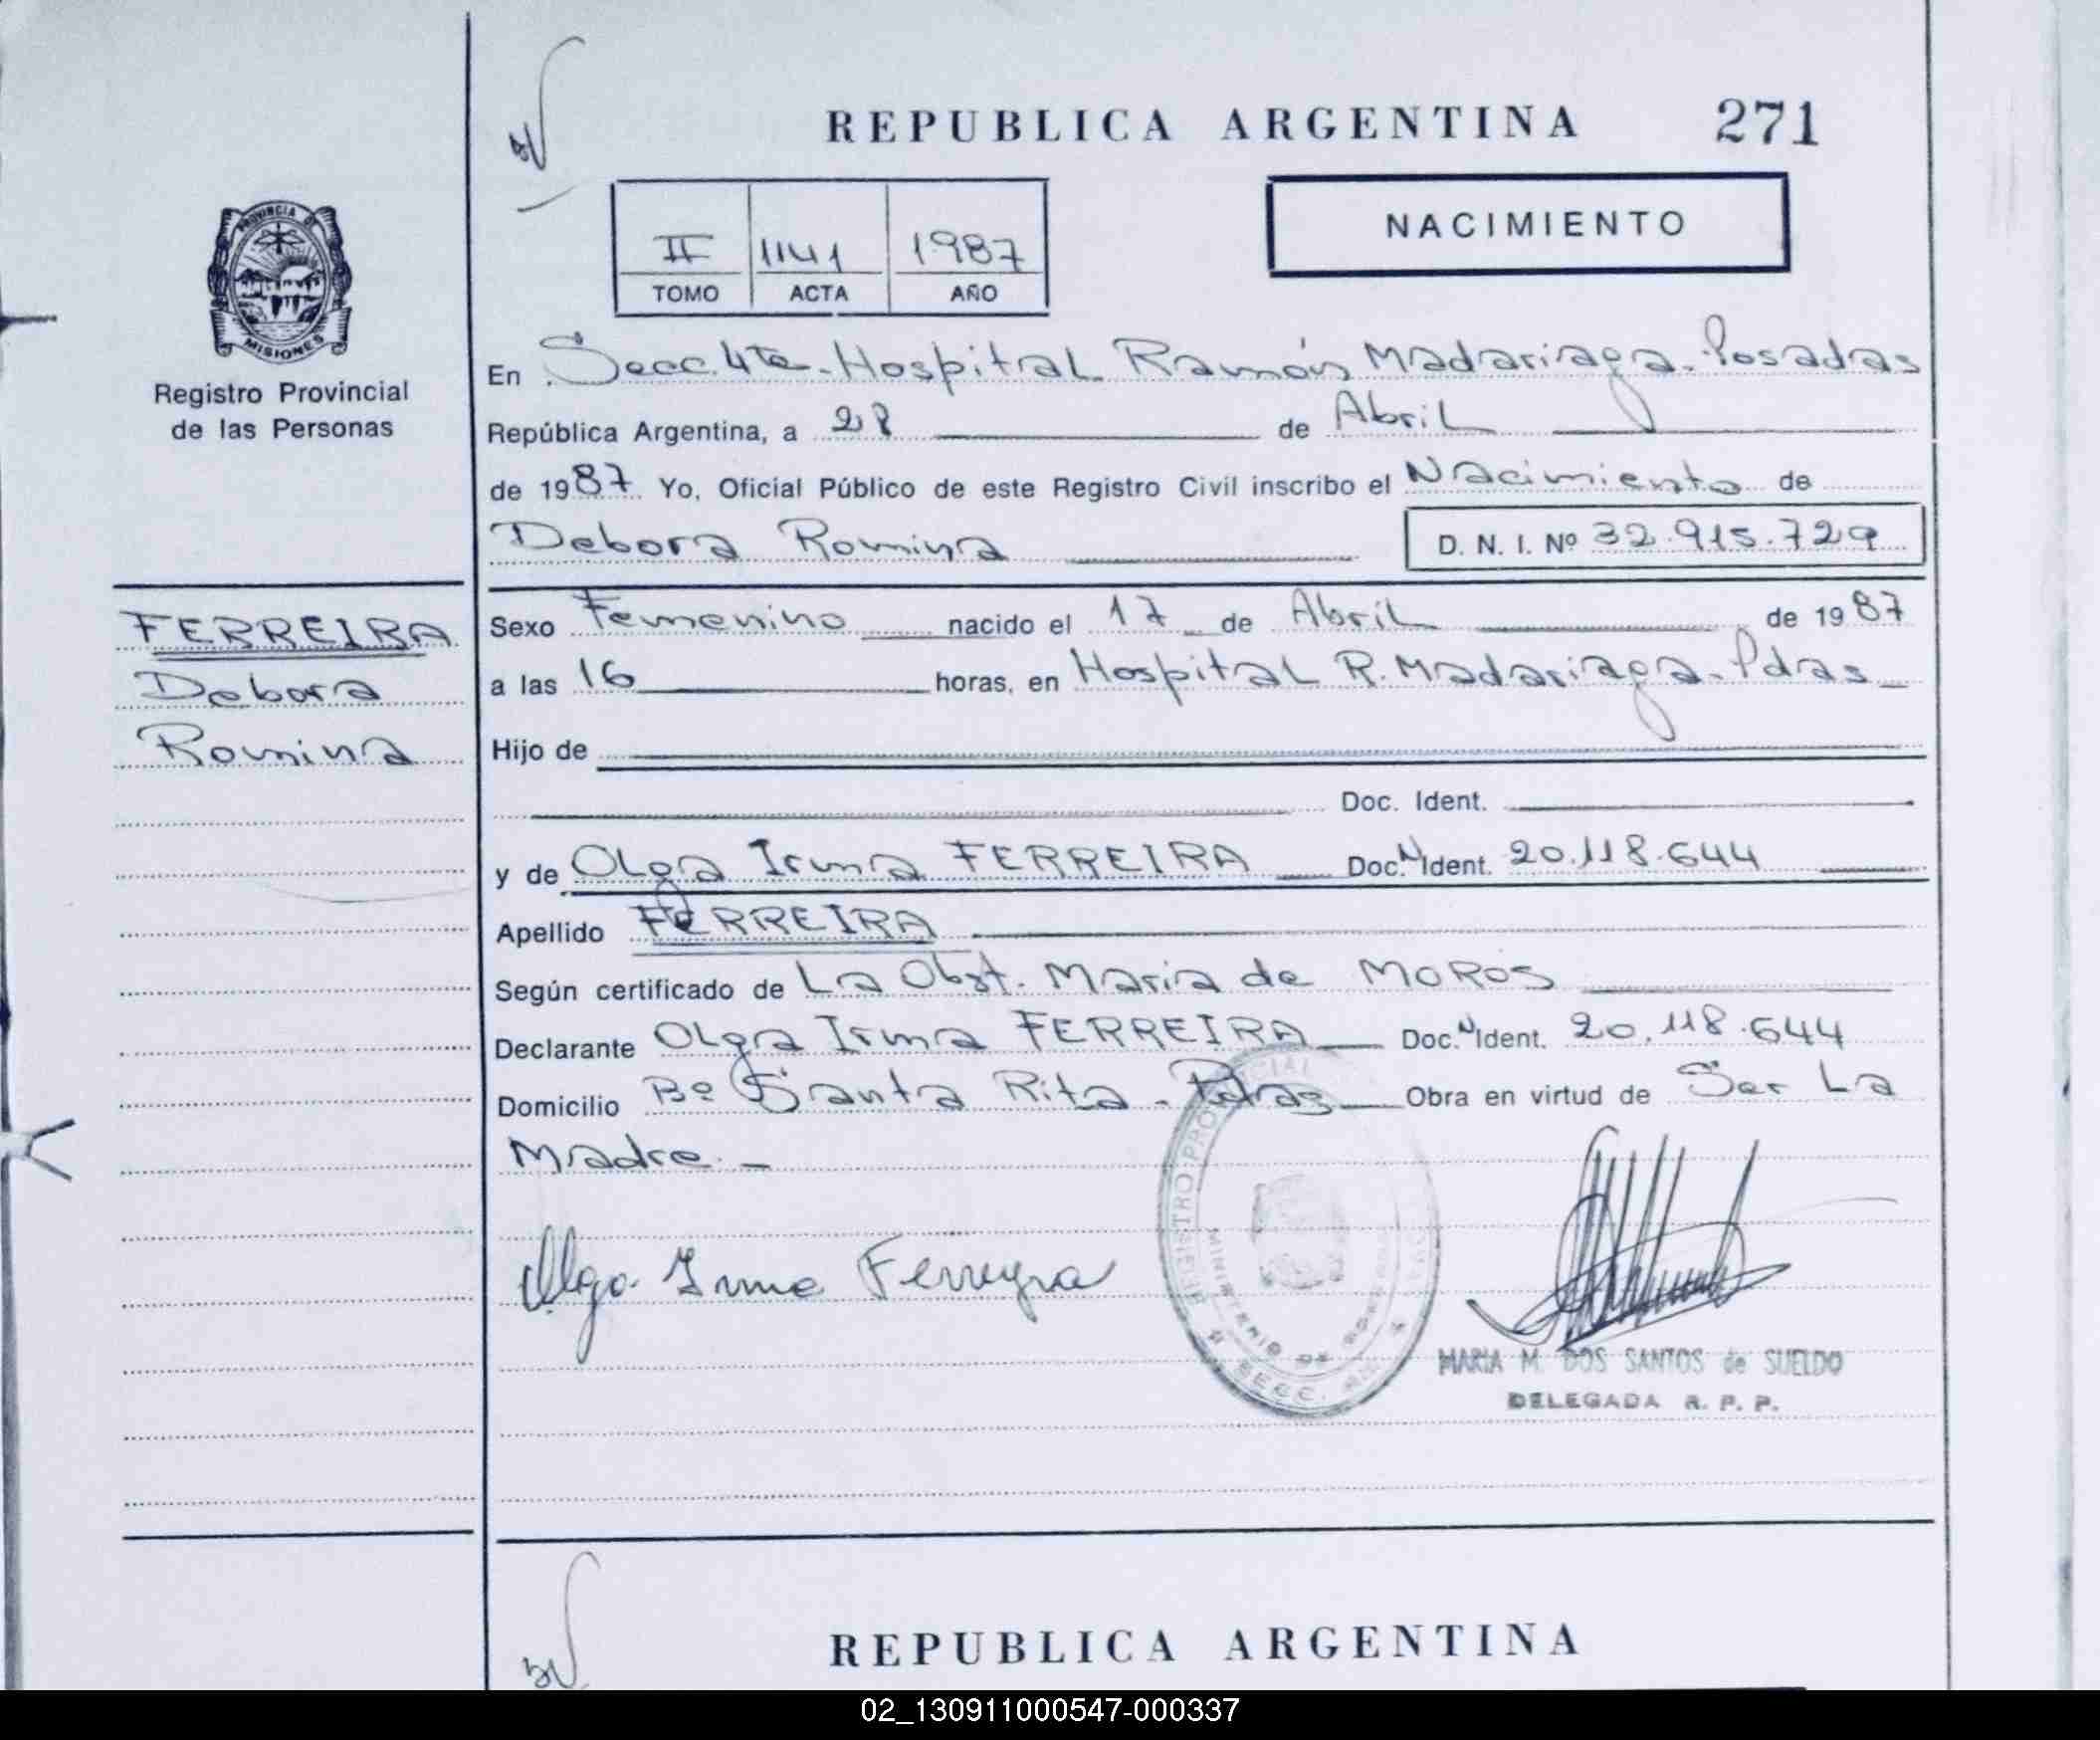 REPUBLICA ARGENTINA 271
II 1141 1987
TOMO ACTA AÑO
NACIMIENTO
PROVINCIA D
MISIONES
Registro Provincial
de las Personas
En Secc. 4ta. Hospital Ramón Madariaga. Posadas
República Argentina, a 28 de Abril
de 1987 Yo, Oficial Público de este Registro Civil inscribo el Nacimiento de
Debora Romina D. N. I. Nº 32.915.729
FERREIRA
Debora
Romina
Sexo Femenino nacido el 17 de Abril de 1987
a las 16 horas, en Hospital R. Madariaga. Pdas
Hijo de
Doc. Ident.
y de Olga Irma FERREIRA Doc. N Ident. 20.118.644
Apellido FERREIRA
Según certificado de La Obst. Maria de MOROS
Declarante Olga Irma FERREIRA Doc. N Ident. 20.118.644
Domicilio Bº Santa Rita - Pdas Obra en virtud de Ser La
Madre. -
Olga Irma Ferreyra
REGISTRO PROVINCIAL
MINISTERIO DE
SECC.
MARIA M. DOS SANTOS de SUELDO
DELEGADA R. P. P.
REPUBLICA ARGENTINA
02_130911000547-000337